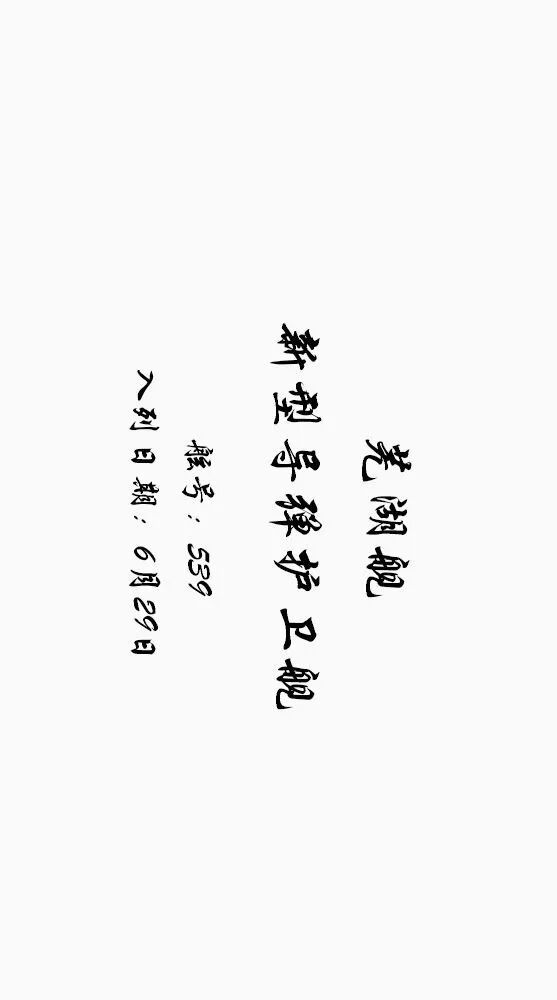 芜湖舰
新型导弹护卫舰
舷号：539
入列日期：6月29日